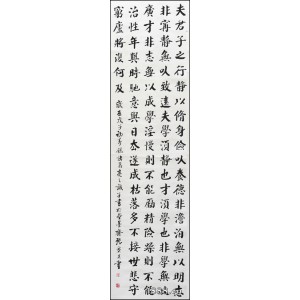 夫君子之行靜以脩身儉以養德非澹泊無以明志
非寧靜無以致遠夫學須靜也才須學也非學無以
廣才非志無以成學淫慢則不能勵精險躁則不能
治性年與時馳意與日去遂成枯落多不接世悲守
窮廬將復何及 歲在戊子初春錄諸葛亮之誡子書